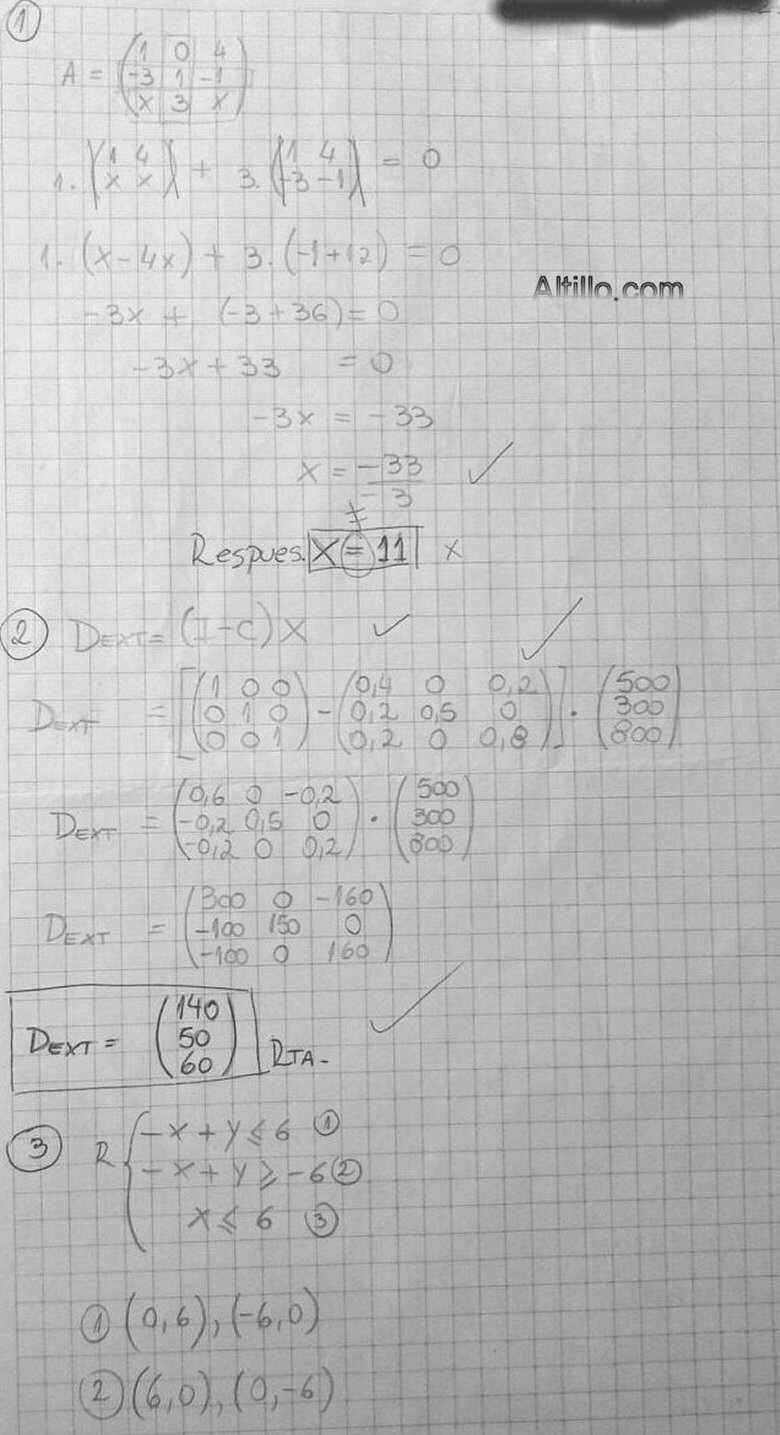 1
A = (1 0 4
-3 1 -1
x 3 x)
1. |1 4
x x| + 3. |1 4
-3 -1| = 0
1. (x - 4x) + 3. (-1+12) = 0
Altillo.com
-3x + (-3 + 36) = 0
-3x + 33 = 0
-3x = -33
x = -33
-3
≠
Respues. X = 11 x
2 DEXT = (I - C) X ✓
DEXT = [(1 0 0
0 1 0
0 0 1) - (0,4 0 0,2
0,2 0,5 0
0,2 0 0,8)] . (500
300
800)
DEXT = (0,6 0 -0,2
-0,2 0,5 0
-0,2 0 0,2) . (500
300
800)
DEXT = (300 0 -160
-100 150 0
-100 0 160)
DEXT = (140
50
60) RTA-
3 R { -x + y ≤ 6 ①
-x + y ≥ -6 ②
x ≤ 6 ③
① (0,6), (-6,0)
② (6,0), (0,-6)